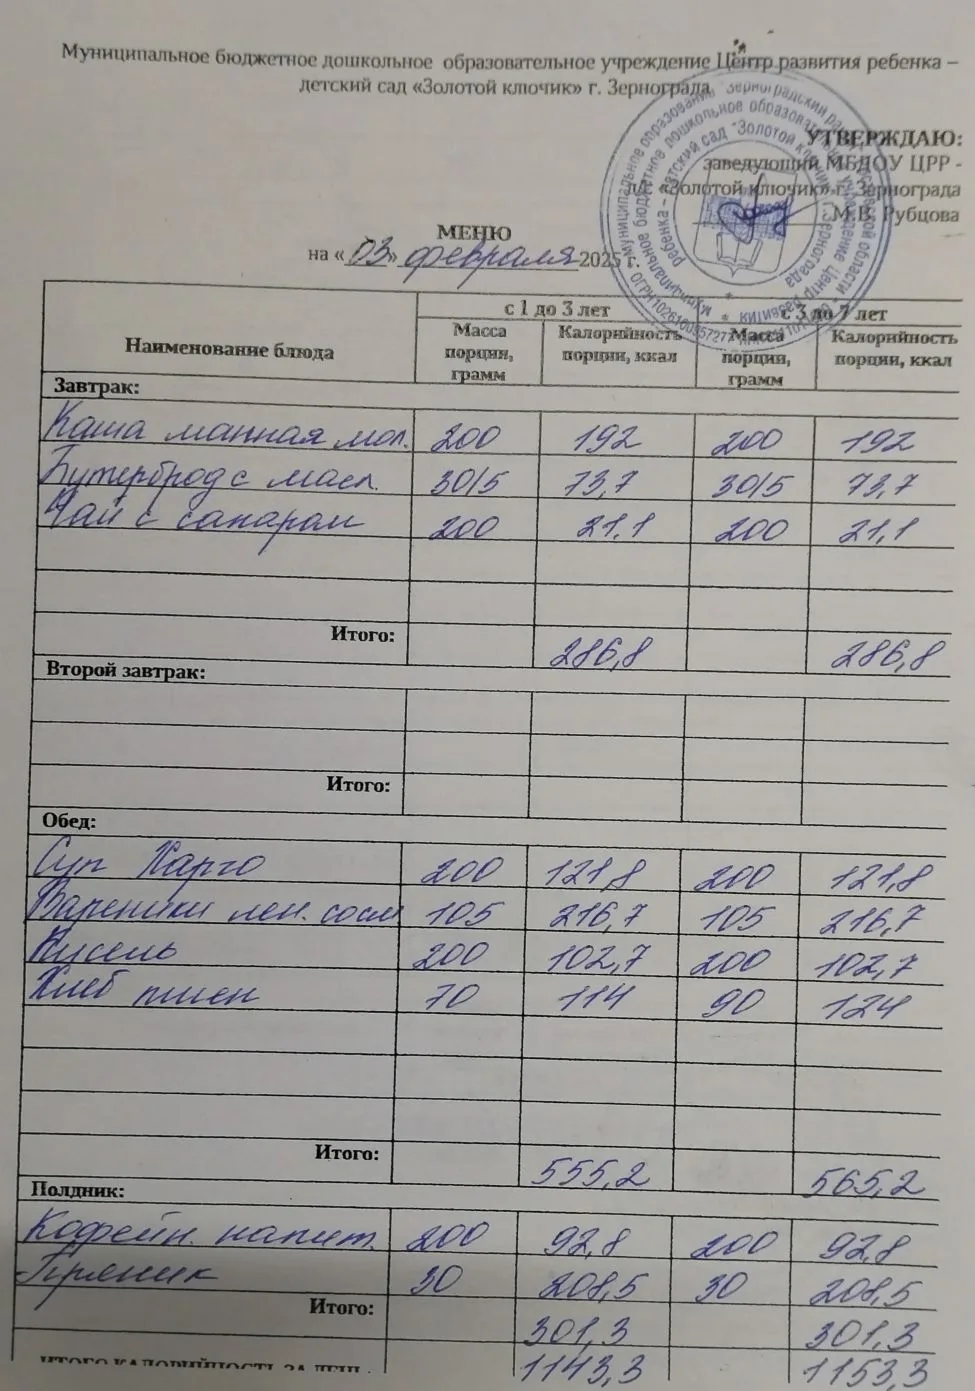 Муниципальное бюджетное дошкольное образовательное учреждение Центр развития ребенка –
детский сад «Золотой ключик» г. Зернограда
УТВЕРЖДАЮ:
заведующий МБДОУ ЦРР -
д/с «Золотой ключик» г. Зернограда
М.В. Рубцова
МЕНЮ
на «03» февраля 2025 г.
Наименование блюда с 1 до 3 лет с 3 до 7 лет
Масса порции, грамм Калорийность порции, ккал Масса порции, грамм Калорийность порции, ккал
Завтрак:
Каша манная мол. 200 192 200 192
Бутерброд с масл. 30/5 73,7 30/5 73,7
Чай с сахаром 200 21,1 200 21,1
Итого: 286,8 286,8
Второй завтрак:
Итого:
Обед:
Суп Харчо 200 121,8 200 121,8
Вареники лен. 105 216,7 105 216,7
Кисель 200 102,7 200 102,7
Хлеб пшен 70 114 90 124
Итого: 555,2 565,2
Полдник:
Кофейн. напит. 200 92,8 200 92,8
Пряник 30 208,5 30 208,5
Итого: 301,3 301,3
ИТОГО КАЛОРИЙНОСТЬ ЗА ДЕНЬ: 1143,3 1153,3